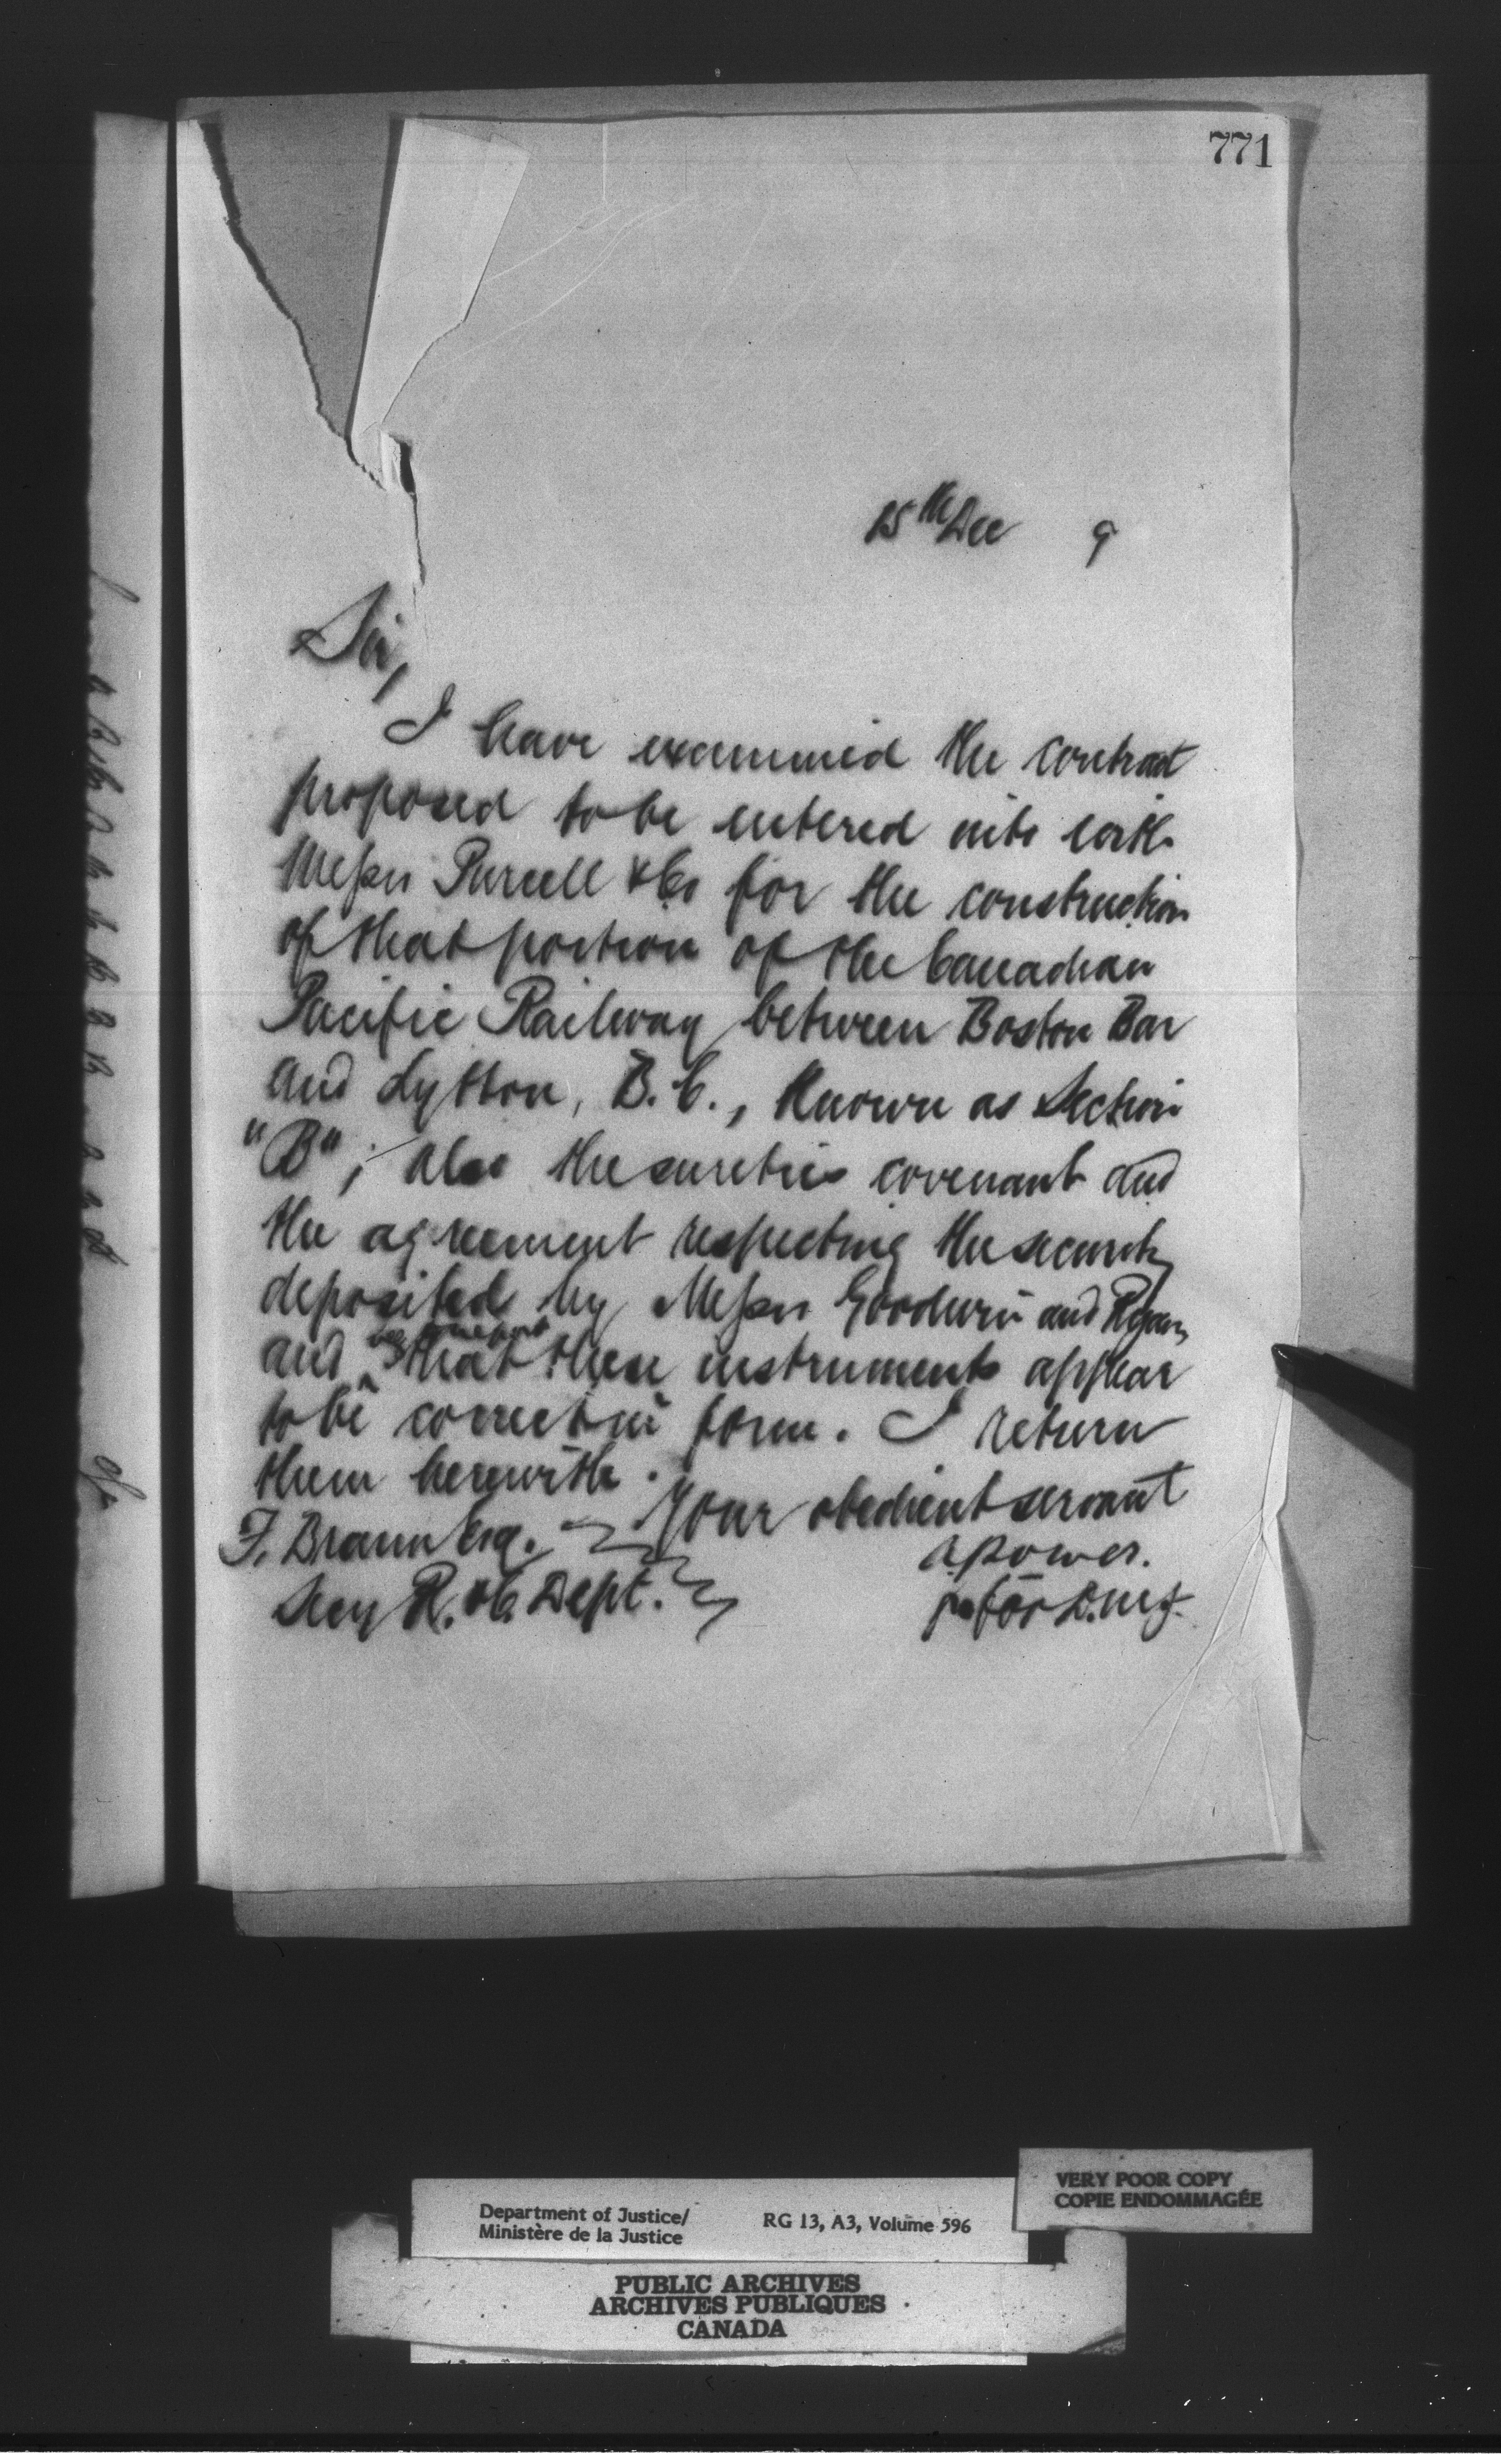 771
15th Dec 9
Sir,
I have examined the contract
proposed to be entered into with
Messrs Purcell & Co for the construction
of that portion of the Canadian
Pacific Railway between Boston Bar
and Lytton, B.C., known as Section
"B"; also the sureties covenant and
the agreement respecting the security
deposited by Messrs Goodwin and Ryan,
beg to report
and ^ that these instruments appear
to be correct in form. I return
them herewith.
Your obedient servant
F. Braun Esq.
A Power.
Secy R. & C. Dept.
for D.M.J.
Department of Justice/
Ministère de la Justice
RG 13, A3, Volume 596
VERY POOR COPY
COPIE ENDOMMAGÉE
PUBLIC ARCHIVES
ARCHIVES PUBLIQUES
CANADA